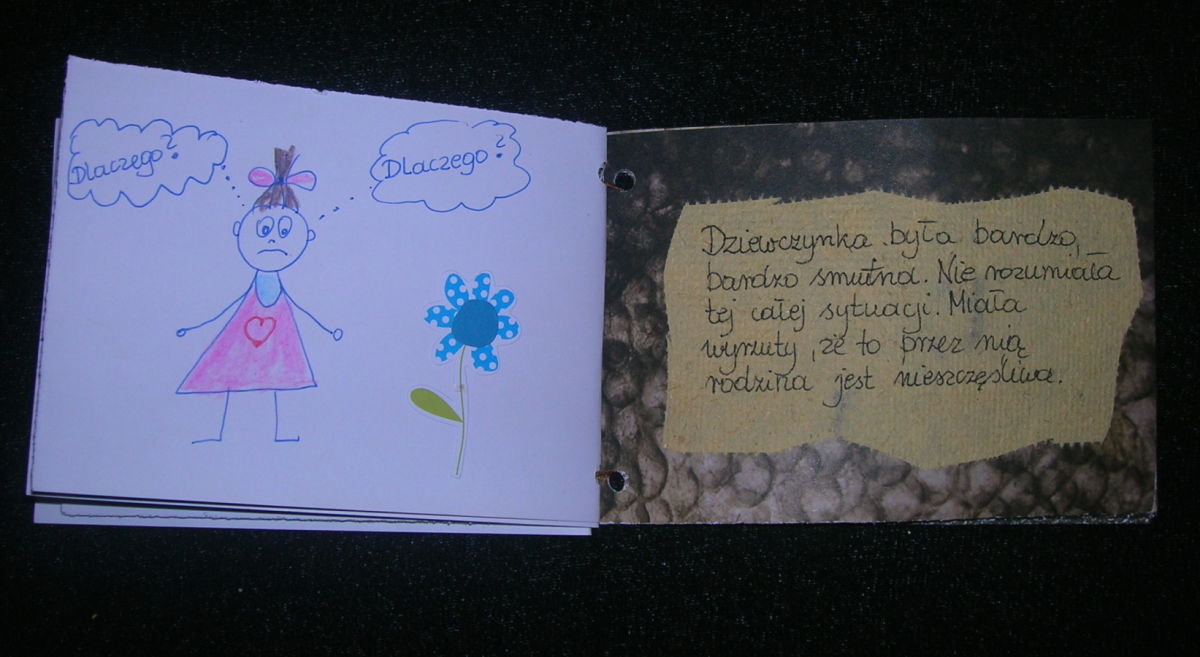 Dlaczego?
Dlaczego?
Dziewczynka była bardzo,
bardzo smutna. Nie rozumiała
tej całej sytuacji. Miała
wyrzuty, że to przez nią
rodzina jest nieszczęśliwa.